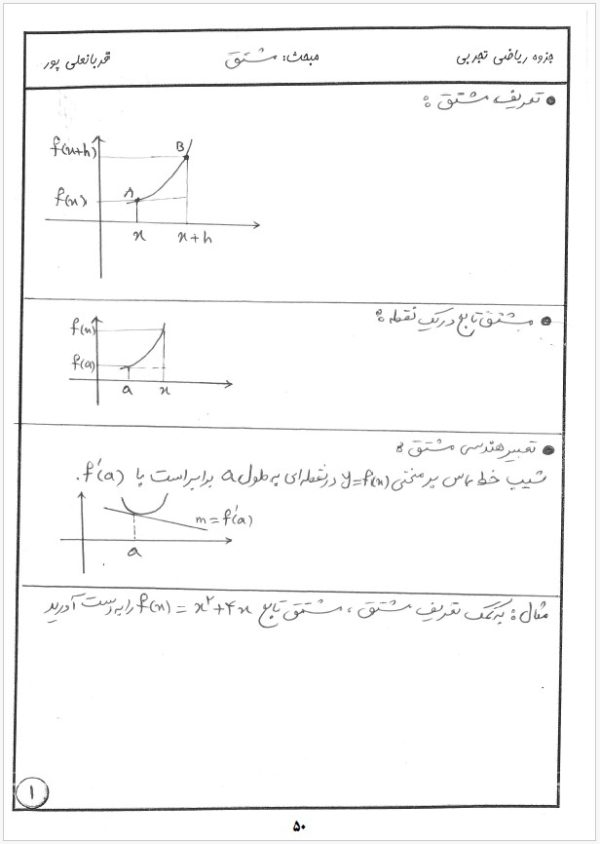 جزوه ریاضی تجربی
مبحث: مشتق
قربانعلی پور
● تعریف مشتق :
f(x+h)
B
f(x)
A
x
x+h
● مشتق تابع در یک نقطه :
f(x)
f(a)
a
x
● تعبیر هندسی مشتق :
شیب خط مماس بر منحنی y=f(x) در نقطه‌ای به طول a برابر است با f'(a).
m=f'(a)
a
مثال : به کمک تعریف مشتق ، مشتق تابع f(x) = x²+۴x را به دست آورید
۱
۵۰